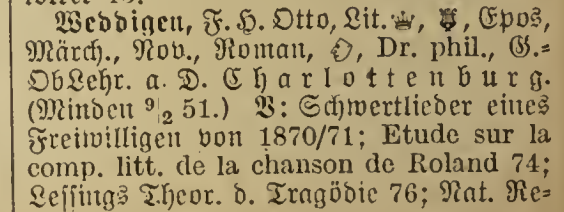 Weddigen, F. H. Otto, Lit. Epos,
Märch., Nov., Roman, Dr. phil., G.=
ObLehr. a. D. Charlottenburg.
(Minden 9/2 51.) V: Schwertlieder eines
Freiwilligen von 1870/71; Etude sur la
comp. litt. de la chanson de Roland 74;
Lessings Theor. d. Tragödie 76; Nat. Re=